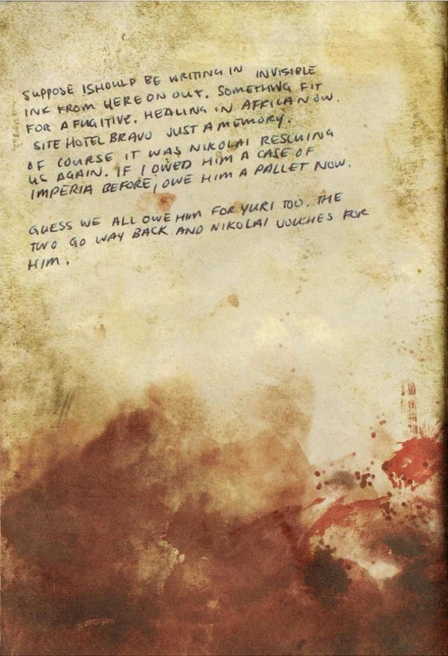 SUPPOSE I SHOULD BE WRITING IN INVISIBLE
INK FROM HERE ON OUT. SOMETHING FIT
FOR A FUGITIVE. HEALING IN AFRICA NOW.
SITE HOTEL BRAVO JUST A MEMORY.
OF COURSE IT WAS NIKOLAI RESCUING
US AGAIN. IF I OWED HIM A CASE OF
IMPERIA BEFORE, I OWE HIM A PALLET NOW.
GUESS WE ALL OWE HIM FOR YURI TOO. THE
TWO GO WAY BACK AND NIKOLAI VOUCHES FOR
HIM.